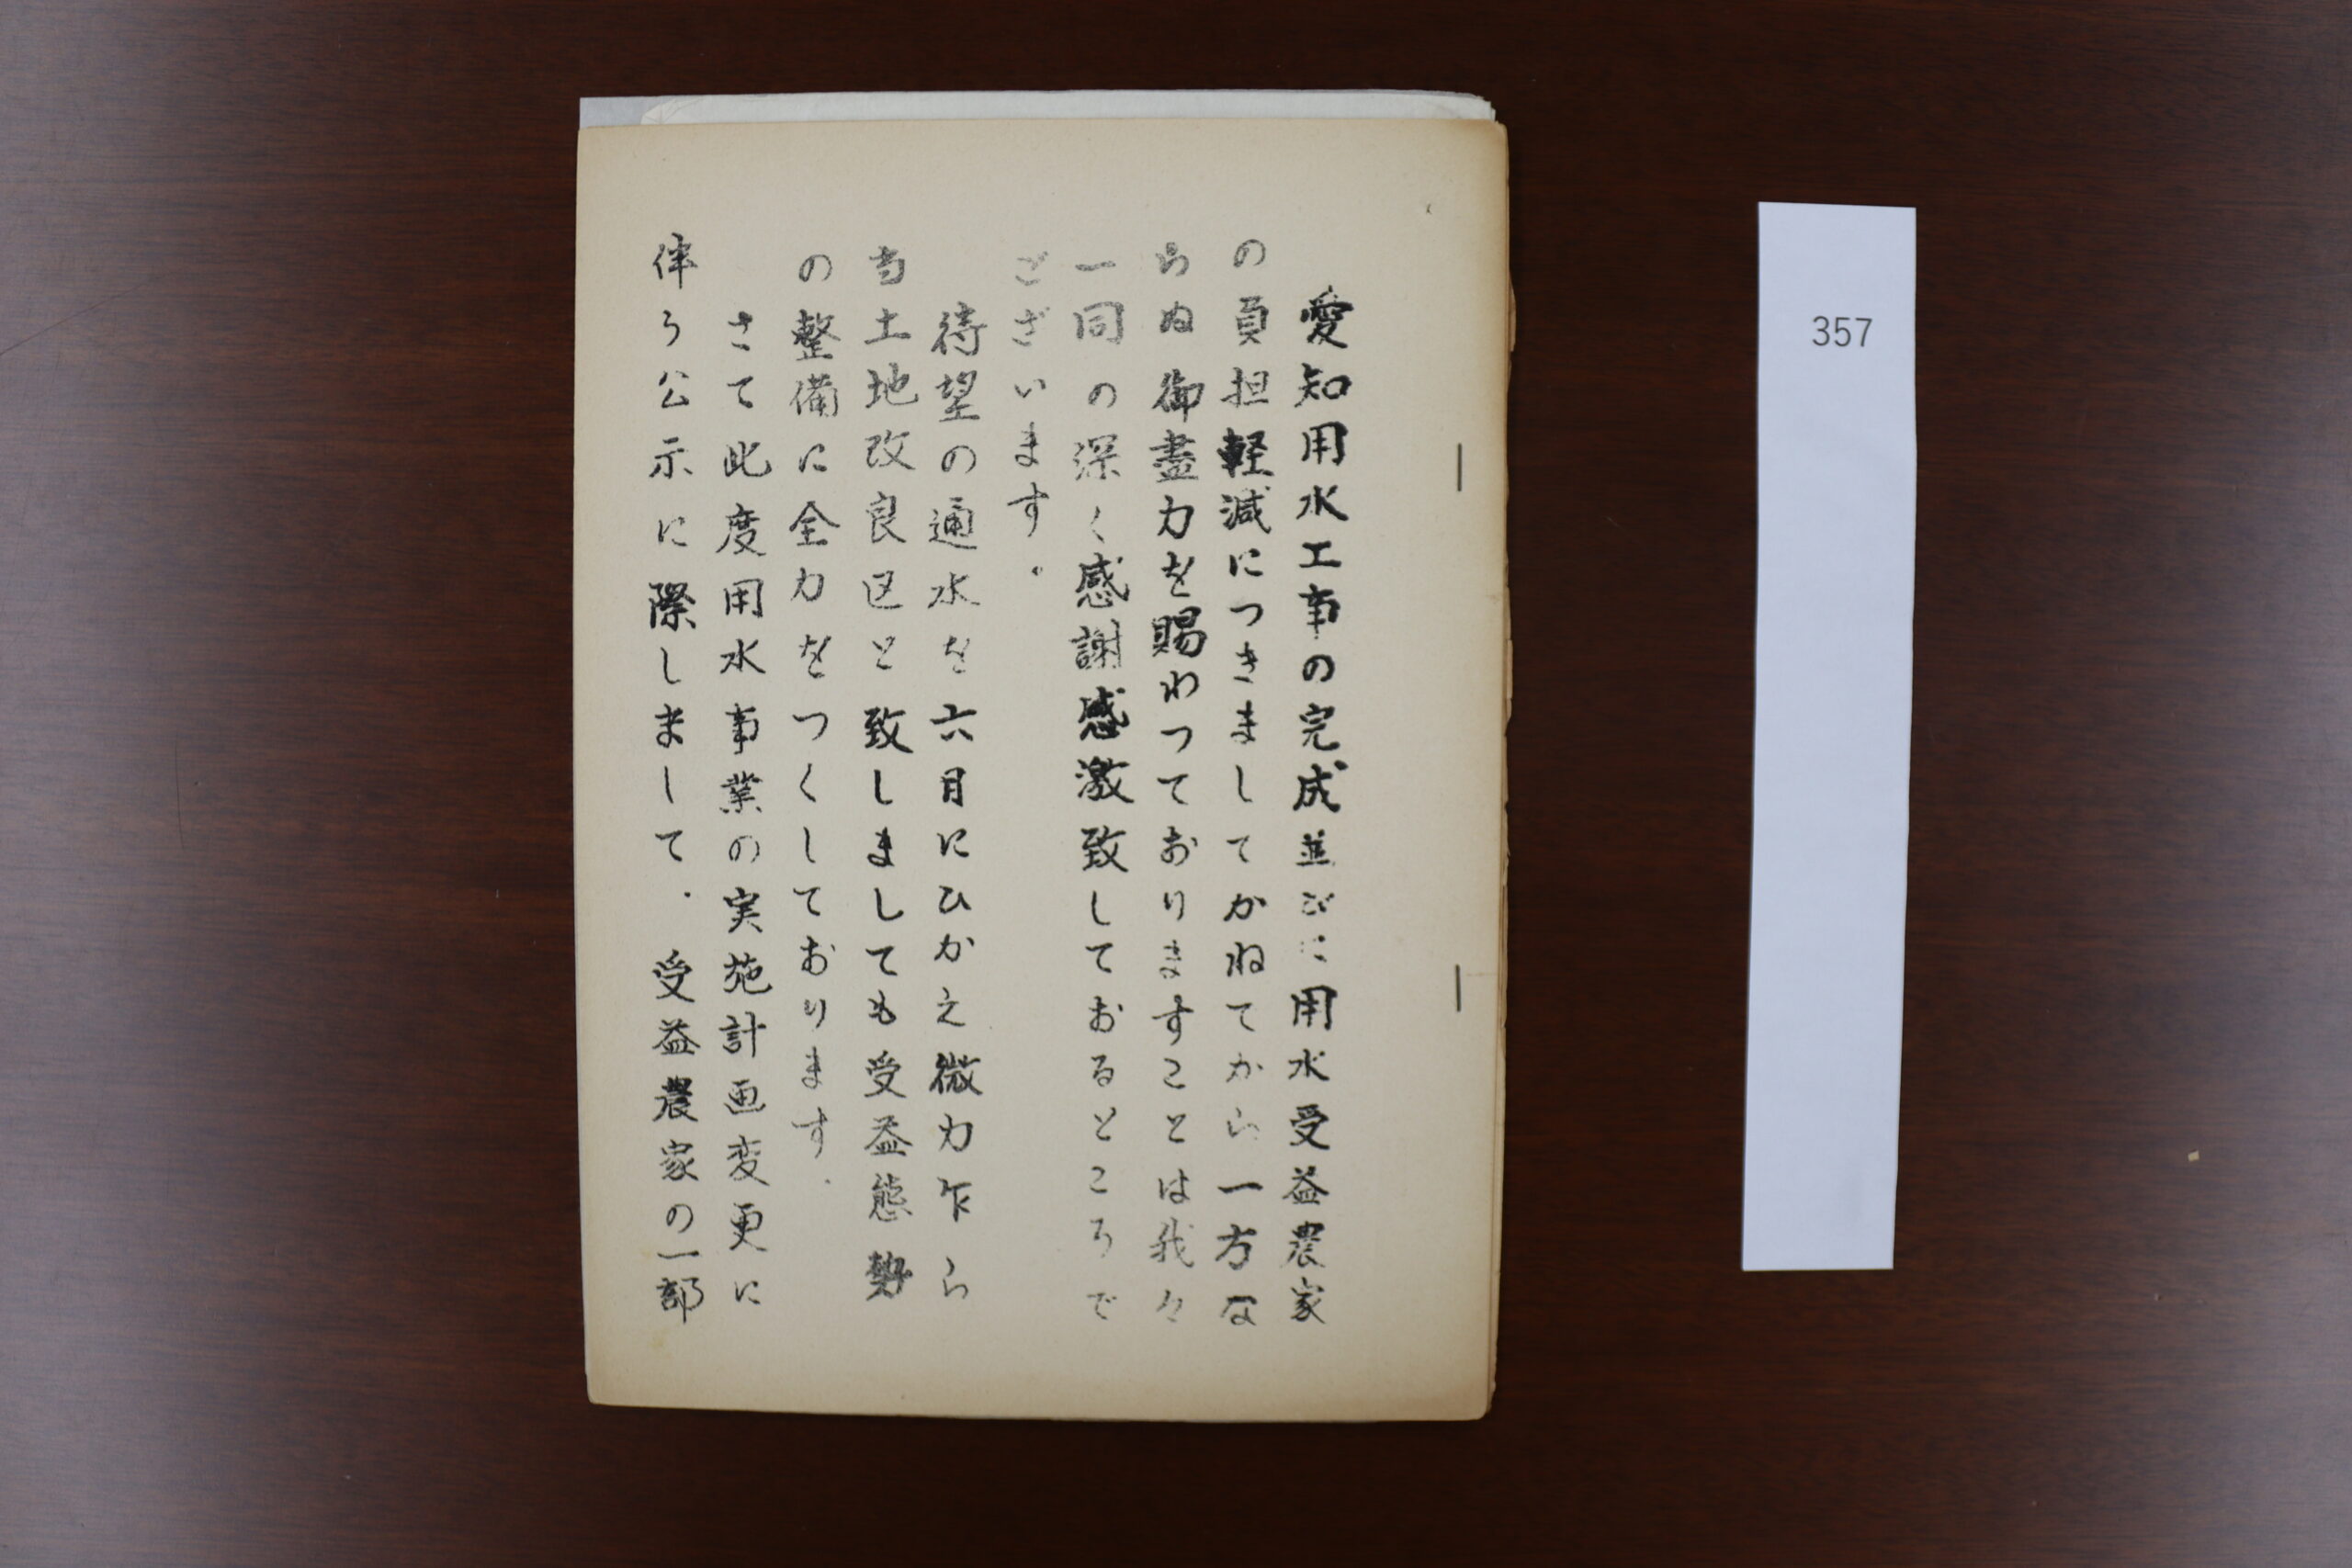 愛知用水工事の完成並びに用水受益農家
の負担軽減につきましてかねてから一方な
らぬ御盡力を賜わつておりますことは我々
一同の深く感謝感激致しておるところで
ございます。
待望の通水を六月にひかえ微力乍ら
当土地改良区と致しましても受益態勢
の整備に全力をつくしております.
さて此度用水事業の実施計画変更に
伴う公示に際しまして.受益農家の一部
357